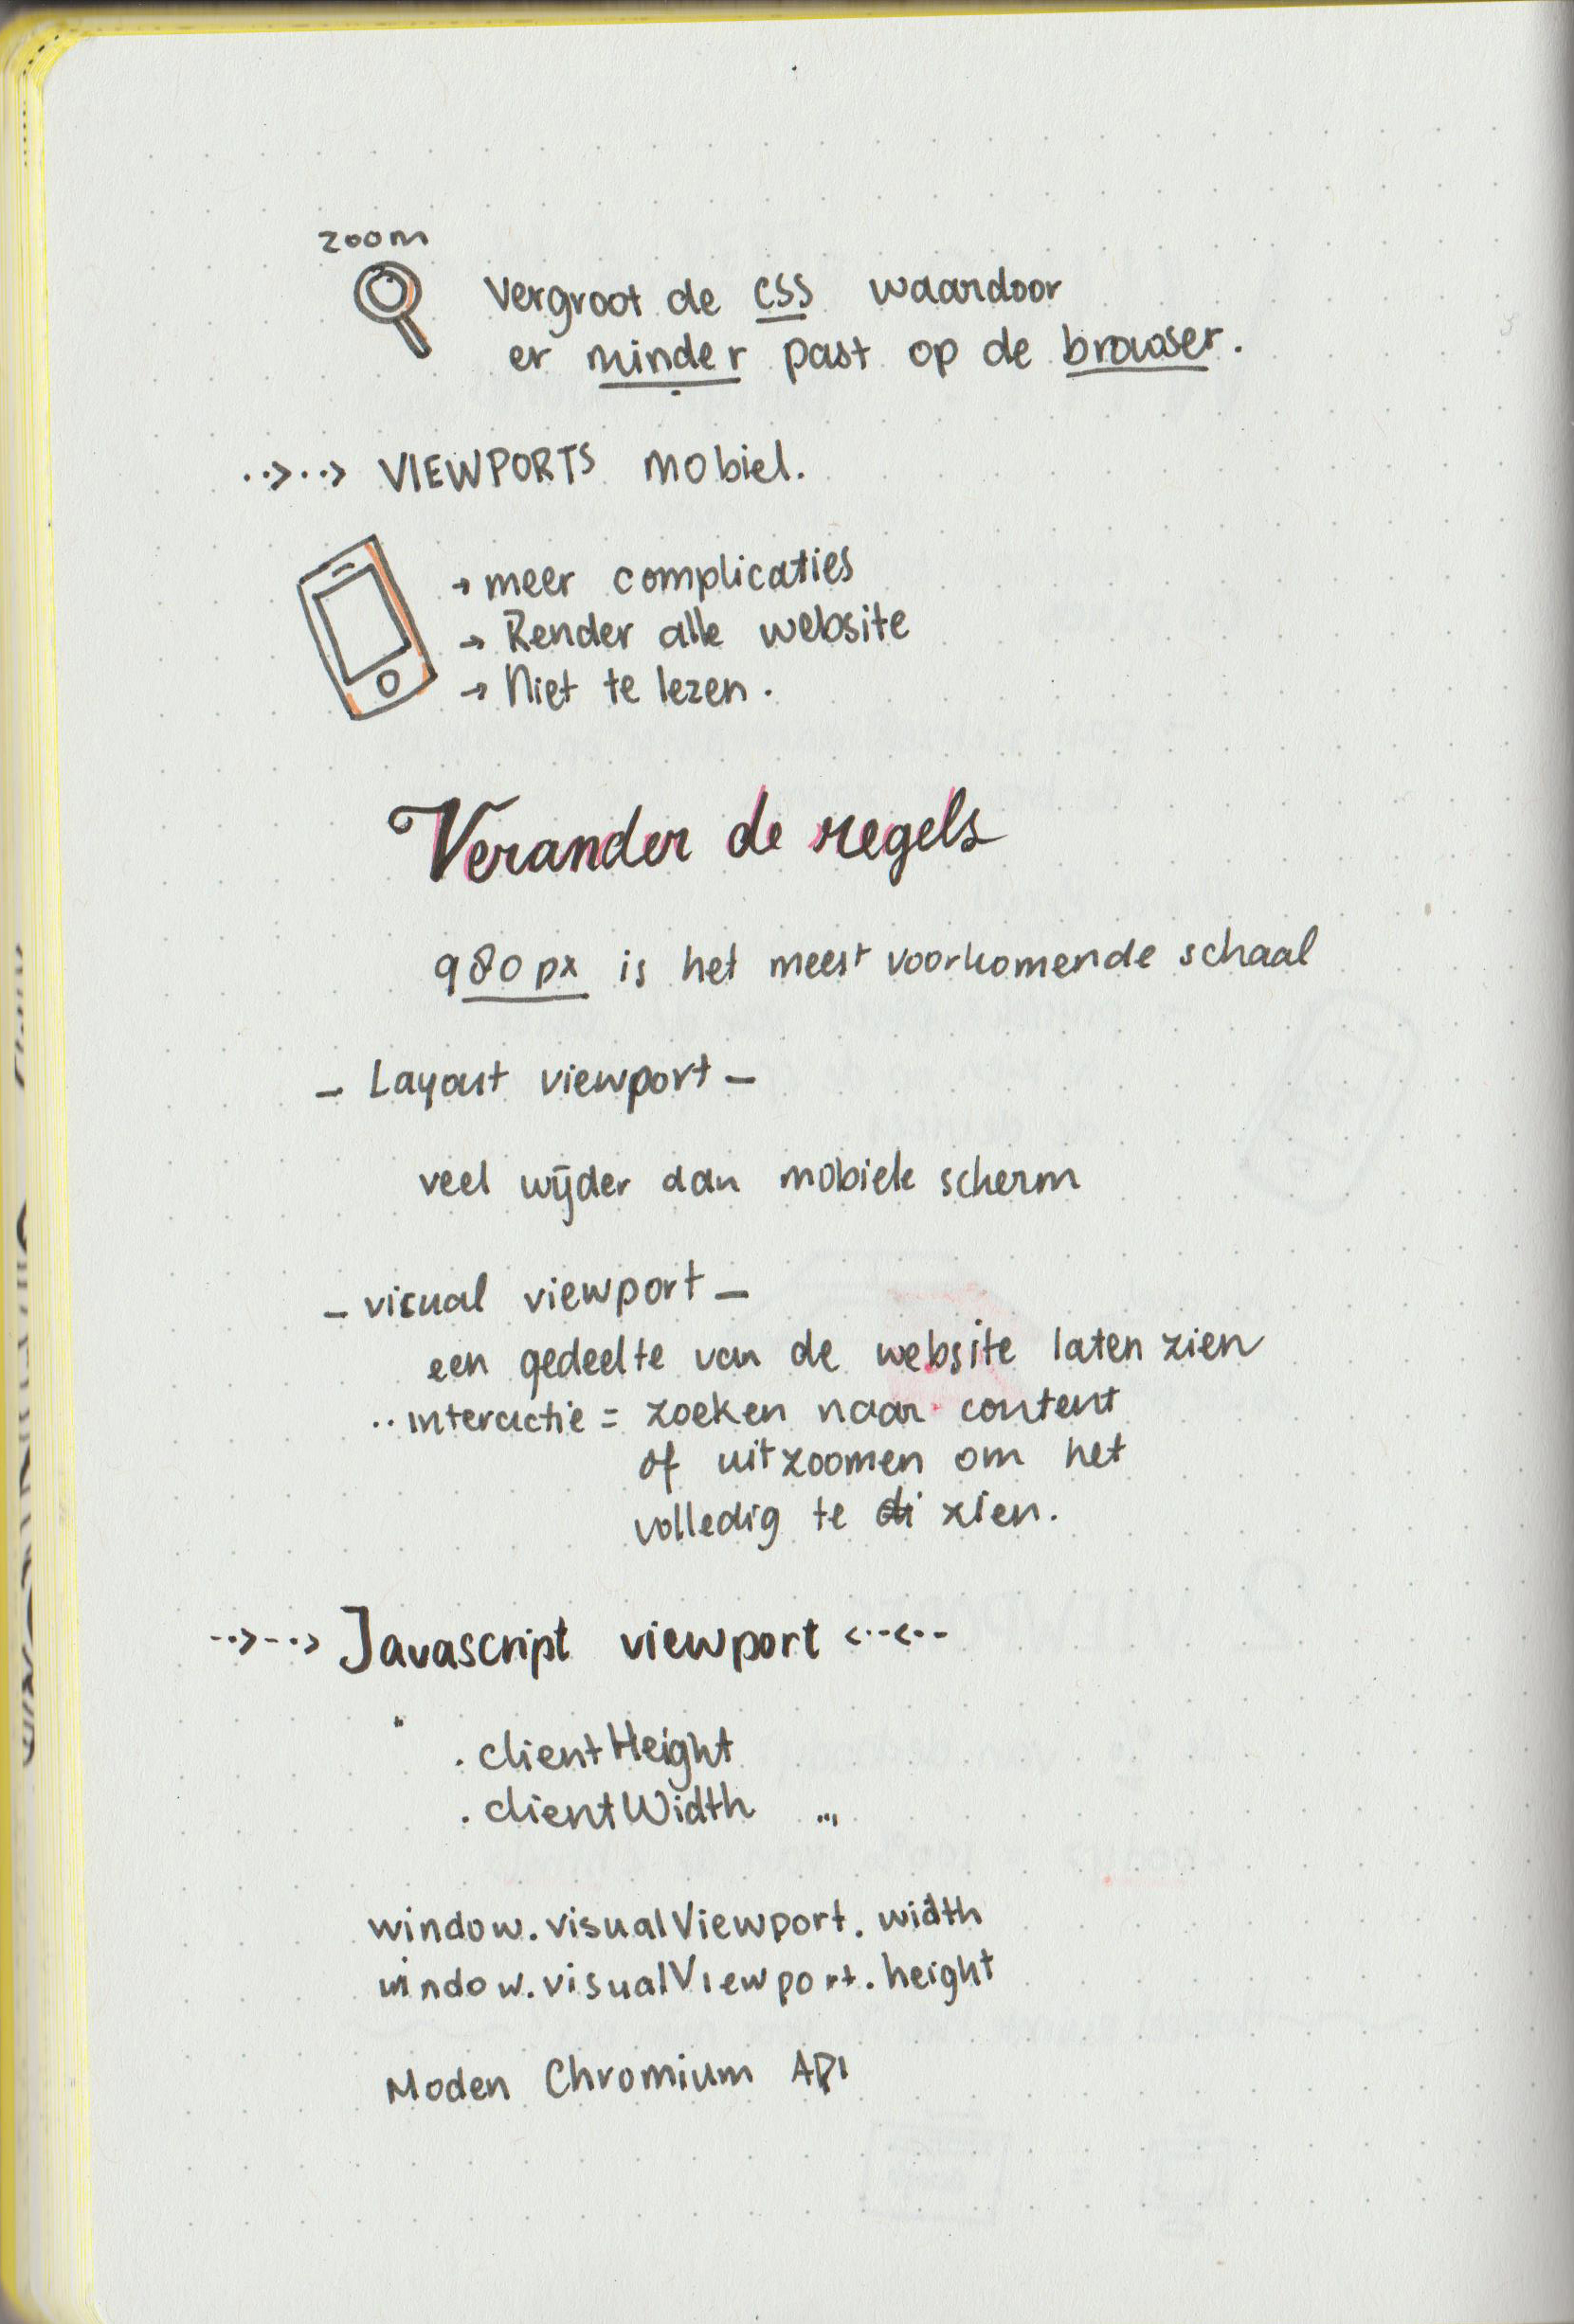 zoom
Vergroot de CSS waardoor
er minder past op de browser.
··>··> VIEWPORTS mobiel.
→ meer complicaties
→ Render alle website
→ Niet te lezen.
Verander de regels
980px is het meest voorkomende schaal
– Layout viewport –
veel wijder dan mobiele scherm
– visual viewport –
een gedeelte van de website laten zien
·· interactie = zoeken naar content
of uitzoomen om het
volledig te zien.
-·>-·> Javascript viewport <·-<·-
.clientHeight
.clientWidth
window.visualViewport.width
window.visualViewport.height
Moden Chromium API